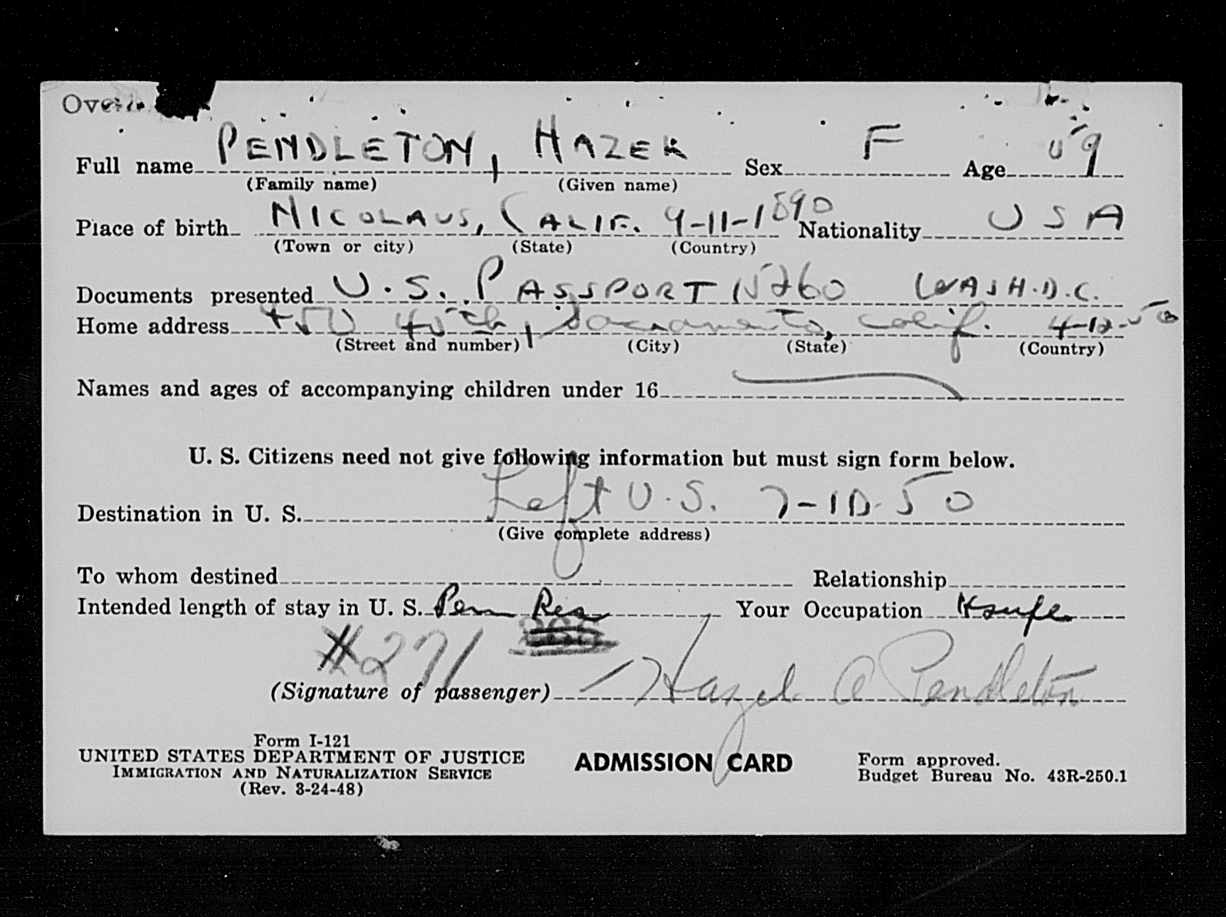 Full name PENDLETON, HAZEK Sex F Age 59
(Family name) (Given name)
Place of birth NICOLAUS, CALIF. 9-11-1890 Nationality USA
(Town or city) (State) (Country)
Documents presented U.S. PASSPORT WASH.D.C.
Home address 45th, Sacramento, Calif.
(Street and number) (City) (State) (Country)
Names and ages of accompanying children under 16
U. S. Citizens need not give following information but must sign form below.
Destination in U. S. Left U.S. 7-10-50
(Give complete address)
To whom destined Relationship
Intended length of stay in U. S. Perm Res Your Occupation Hswfe
#271
(Signature of passenger) Hazel A Pendleton
Form I-121
UNITED STATES DEPARTMENT OF JUSTICE
IMMIGRATION AND NATURALIZATION SERVICE
(Rev. 3-24-48)
ADMISSION CARD
Form approved.
Budget Bureau No. 43R-250.1